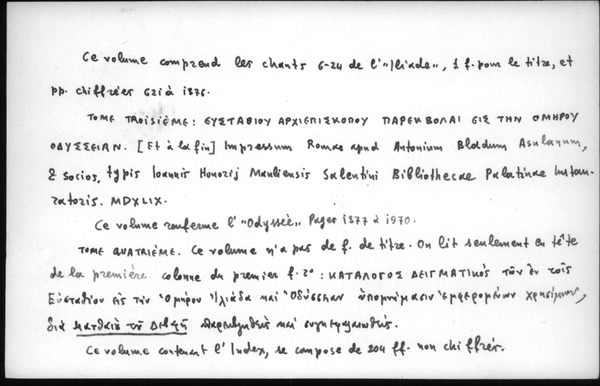 Ce volume comprend les chants 6-24 de l'"Iliade", 1 f. pour le titre, et
pp. chiffrées 621 à 1376.
TOME TROISIÈME: ΕΥΣΤΑΘΙΟΥ ΑΡΧΙΕΠΙΣΚΟΠΟΥ ΠΑΡΕΚΒΟΛΑΙ ΕΙΣ ΤΗΝ ΟΜΗΡΟΥ
ΟΔΥΣΣΕΙΑΝ. [Et à la fin] Impressum Romae apud Antonium Bladum Asulanum,
& socios, typis Ioannis Honorij Manliensis Salentini Bibliothecae Palatinae Instau-
ratoris. MDXLIX.
Ce volume renferme l'"Odyssée". Pages 1377 à 1970.
TOME QUATRIÈME. Ce volume n'a pas de f. de titre. On lit seulement en tête
de la première colonne du premier f. ro: ΚΑΤΑΛΟΓΟΣ ΔΕΙΓΜΑΤΙΚὸς τῶν ἐν τοῖς
Εὐσταθίου εἰς τὴν Ὁμήρου Ἰλιάδα καὶ Ὀδύσσειαν ὑπομνήμασιν ἐμφερομένων χρησίμων,
διὰ Ματθαίου τοῦ Δεβαρῆ καὶ
Ce volume contenant l'Index, se compose de 204 ff. non chiffrés.